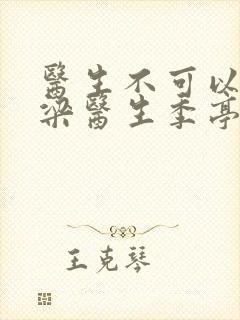 醫生不可以
梁醫生季亭
王克琴